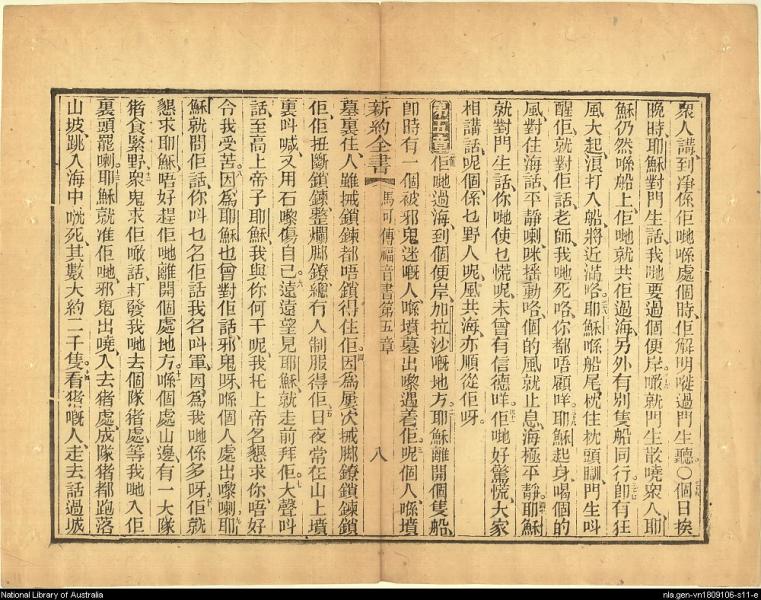 衆人講到淨係佢哋喺處個時佢解明㗎過門生聽○個日挨
晚時耶穌對門生話我哋要過個便岸噉就門生散曉衆人耶
穌仍然喺船上佢哋就共佢過海另外有別隻船同行卽有狂
風大起浪打入船將近滿咯耶穌喺船尾枕住枕頭瞓門生呌
醒佢就對佢話老師我哋死咯你都唔顧咩耶穌起身喝個的
風對住海話平靜喇咪搖動咯個的風就止息海極平靜耶穌
就對門生話你哋使乜慌呢未曾有信德咩佢哋好驚慌大家
相講話呢個係乜野人呢風共海亦順從佢呀
第五章佢哋過海到個便岸加拉沙嘅地方耶穌離開個隻船
卽時有一個被邪鬼迷嘅人喺墳墓出嚟遇着佢呢個人喺墳
新約全書 馬可傳福音書第五章 八
墓裏住人雖械鎖鍊都唔鎖得住佢因爲屢次械脚鐐鎖鍊鎖
佢佢扭斷鎖鍊整爛脚鐐總冇人制服得佢日夜常在山上墳
裏呌喊又用石嚟傷自己遠遠望見耶穌就走前拜佢大聲呌
話至高上帝子耶穌我與你何干呢我托上帝名懇求你唔好
令我受苦因爲耶穌也曾對佢話邪鬼呀喺個人處出嚟喇耶
穌就問佢話你呌乜名佢話我名呌軍因爲我哋係多呀佢就
懇求耶穌唔好趕佢哋離開個處地方喺個處山邊有一大隊
猪食緊野衆鬼求佢噉話打發我哋去個隊猪處等我哋入佢
裏頭罷喇耶穌就准佢哋邪鬼出曉入去猪處成隊猪都跑落
山坡跳入海中㕭死其數大約二千隻看猪嘅人走去話過城
National Library of Australia
nla.gen-vn1809106-s11-e